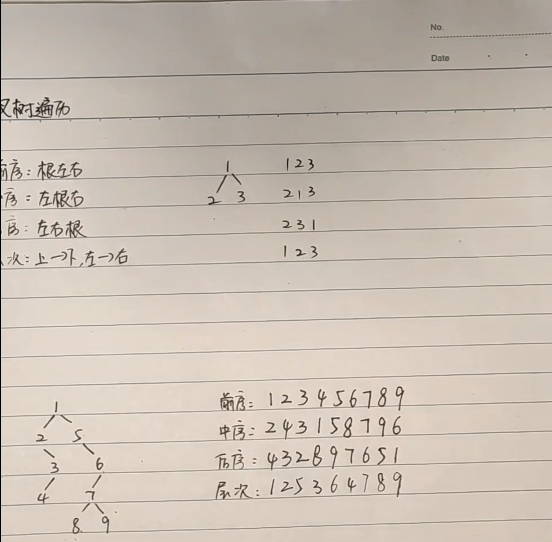 No.
Date
叉树遍历
前序：根左右
序：左根右
序：左右根
次：上→下，左→右
1
2 3
1 2 3
2 1 3
2 3 1
1 2 3
1
2 5
3 6
4 7
8 9
前序：1 2 3 4 5 6 7 8 9
中序：2 4 3 1 5 8 7 9 6
后序：4 3 2 8 9 7 6 5 1
层次：1 2 5 3 6 4 7 8 9